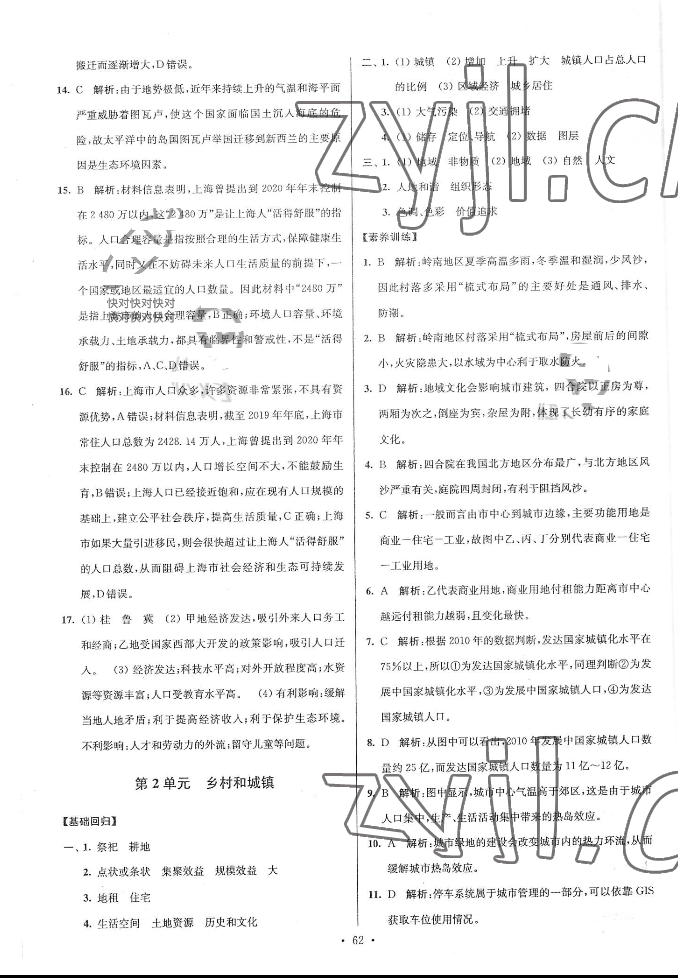 搬迁而逐渐增大,D错误。
14. C 解析:由于地势极低,近年来持续上升的气温和海平面
严重威胁着图瓦卢,使这个国家面临国土沉入海底的危
险,故太平洋中的岛国图瓦卢举国迁移到新西兰的主要原
因是生态环境因素。
15. B 解析:材料信息表明,上海曾提出到 2020 年年末控制
在 2 480 万以内,这“2 480 万”是让上海人“活得舒服”的指
标。人口合理容量是指按照合理的生活方式,保障健康生
活水平,同时又在不妨碍未来人口生活质量的前提下,一
个国家或地区最适宜的人口数量。因此材料中“2480 万”
是指上海市的人口合理容量,B正确;环境人口容量、环境
承载力、土地承载力,都具有临界性和警戒性,不是“活得
舒服”的指标,A、C、D错误。
16. C 解析:上海市人口众多,许多资源非常紧张,不具有资
源优势,A错误;材料信息表明,截至 2019 年年底,上海市
常住人口总数为 2428.14 万人,上海曾提出到 2020 年年
末控制在 2480 万以内,人口增长空间不大,不能鼓励生
育,B错误;上海人口已经接近饱和,应在现有人口规模的
基础上,建立公平社会秩序,提高生活质量,C正确;上海
市如果大量引进移民,则会很快超过让上海人“活得舒服”
的人口总数,从而阻碍上海市社会经济和生态可持续发
展,D错误。
17. (1) 桂 鲁 冀 (2) 甲地经济发达,吸引外来人口务工
和经商;乙地受国家西部大开发的政策影响,吸引人口迁
入。 (3) 经济发达;科技水平高;对外开放程度高;水资
源等资源丰富;人口受教育水平高。 (4) 有利影响:缓解
当地人地矛盾;利于提高经济收入;利于保护生态环境。
不利影响:人才和劳动力的外流;留守儿童等问题。
第 2 单元 乡村和城镇
【基础回归】
一、1. 祭祀 耕地
2. 点状或条状 集聚效益 规模效益 大
3. 地租 住宅
4. 生活空间 土地资源 历史和文化
二、1. (1) 城镇 (2) 增加 上升 扩大 城镇人口占总人口
的比例 (3) 区域经济 城乡居住
3. (1) 大气污染 (2) 交通拥堵
4. (1) 储存 定位、导航 (2) 数据 图层
三、1. (1) 地域 非物质 (2) 地域 (3) 自然 人文
2. 人地和谐 组织形态
3. 色调、色彩 价值追求
【素养训练】
1. B 解析:岭南地区夏季高温多雨,冬季温和湿润,少风沙,
因此村落多采用“梳式布局”的主要好处是通风、排水、
防潮。
2. B 解析:岭南地区村落采用“梳式布局”,房屋前后的间隙
小,火灾隐患大,以水域为中心利于取水防火。
3. D 解析:地域文化会影响城市建筑,四合院以正房为尊,
两厢为次之,倒座为宾,杂屋为附,体现了长幼有序的家庭
文化。
4. B 解析:四合院在我国北方地区分布最广,与北方地区风
沙严重有关,庭院四周封闭,有利于阻挡风沙。
5. C 解析:一般而言由市中心到城市边缘,主要功能用地是
商业—住宅—工业,故图中乙、丙、丁分别代表商业—住宅
—工业用地。
6. A 解析:乙代表商业用地,商业用地付租能力距离市中心
越远付租能力越弱,且变化最快。
7. C 解析:根据 2010 年的数据判断,发达国家城镇化水平在
75%以上,所以①为发达国家城镇化水平,同理判断②为发
展中国家城镇化水平,③为发展中国家城镇人口,④为发达
国家城镇人口。
8. D 解析:从图中可以看出,2010 年发展中国家城镇人口数
量约为 25 亿,而发达国家城镇人口数量为 11 亿~12 亿。
9. B 解析:图中显示,城市中心气温高于郊区,这是由于城市
人口集中,生产、生活活动集中带来的热岛效应。
10. A 解析:城市绿地的建设会改变城市内的热力环流,从而
缓解城市热岛效应。
11. D 解析:停车系统属于城市管理的一部分,可以依靠 GIS
获取车位使用情况。
· 62 ·
快对快对快对
快对快对快对
zyjl.c
zyjl.c